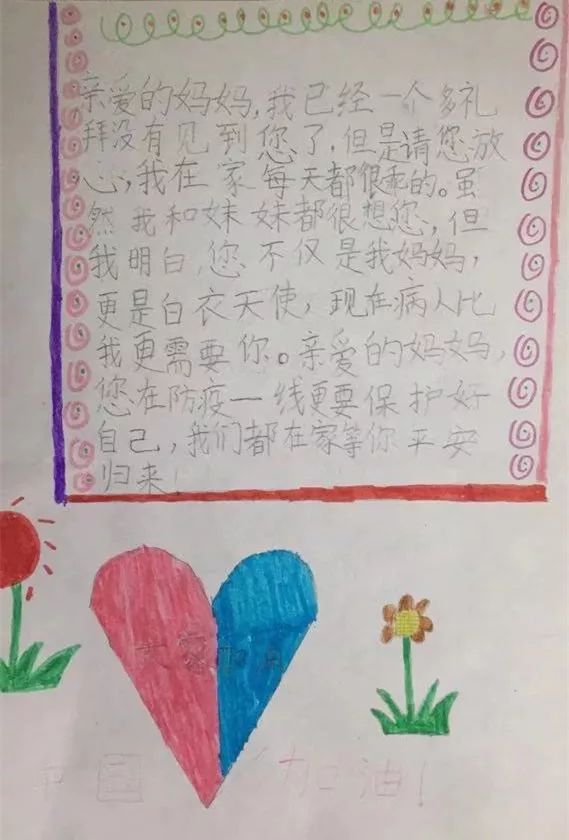 亲爱的妈妈,我已经一个多礼
拜没有见到您了,但是请您放
心,我在家每天都很乖的。虽
然我和妹妹都很想您,但
我明白,您不仅是我妈妈,
更是白衣天使,现在病人比
我更需要你。亲爱的妈妈,
您在防疫一线更要保护好
自己,我们都在家等你平安
归来!
大家加油
中国 加油!